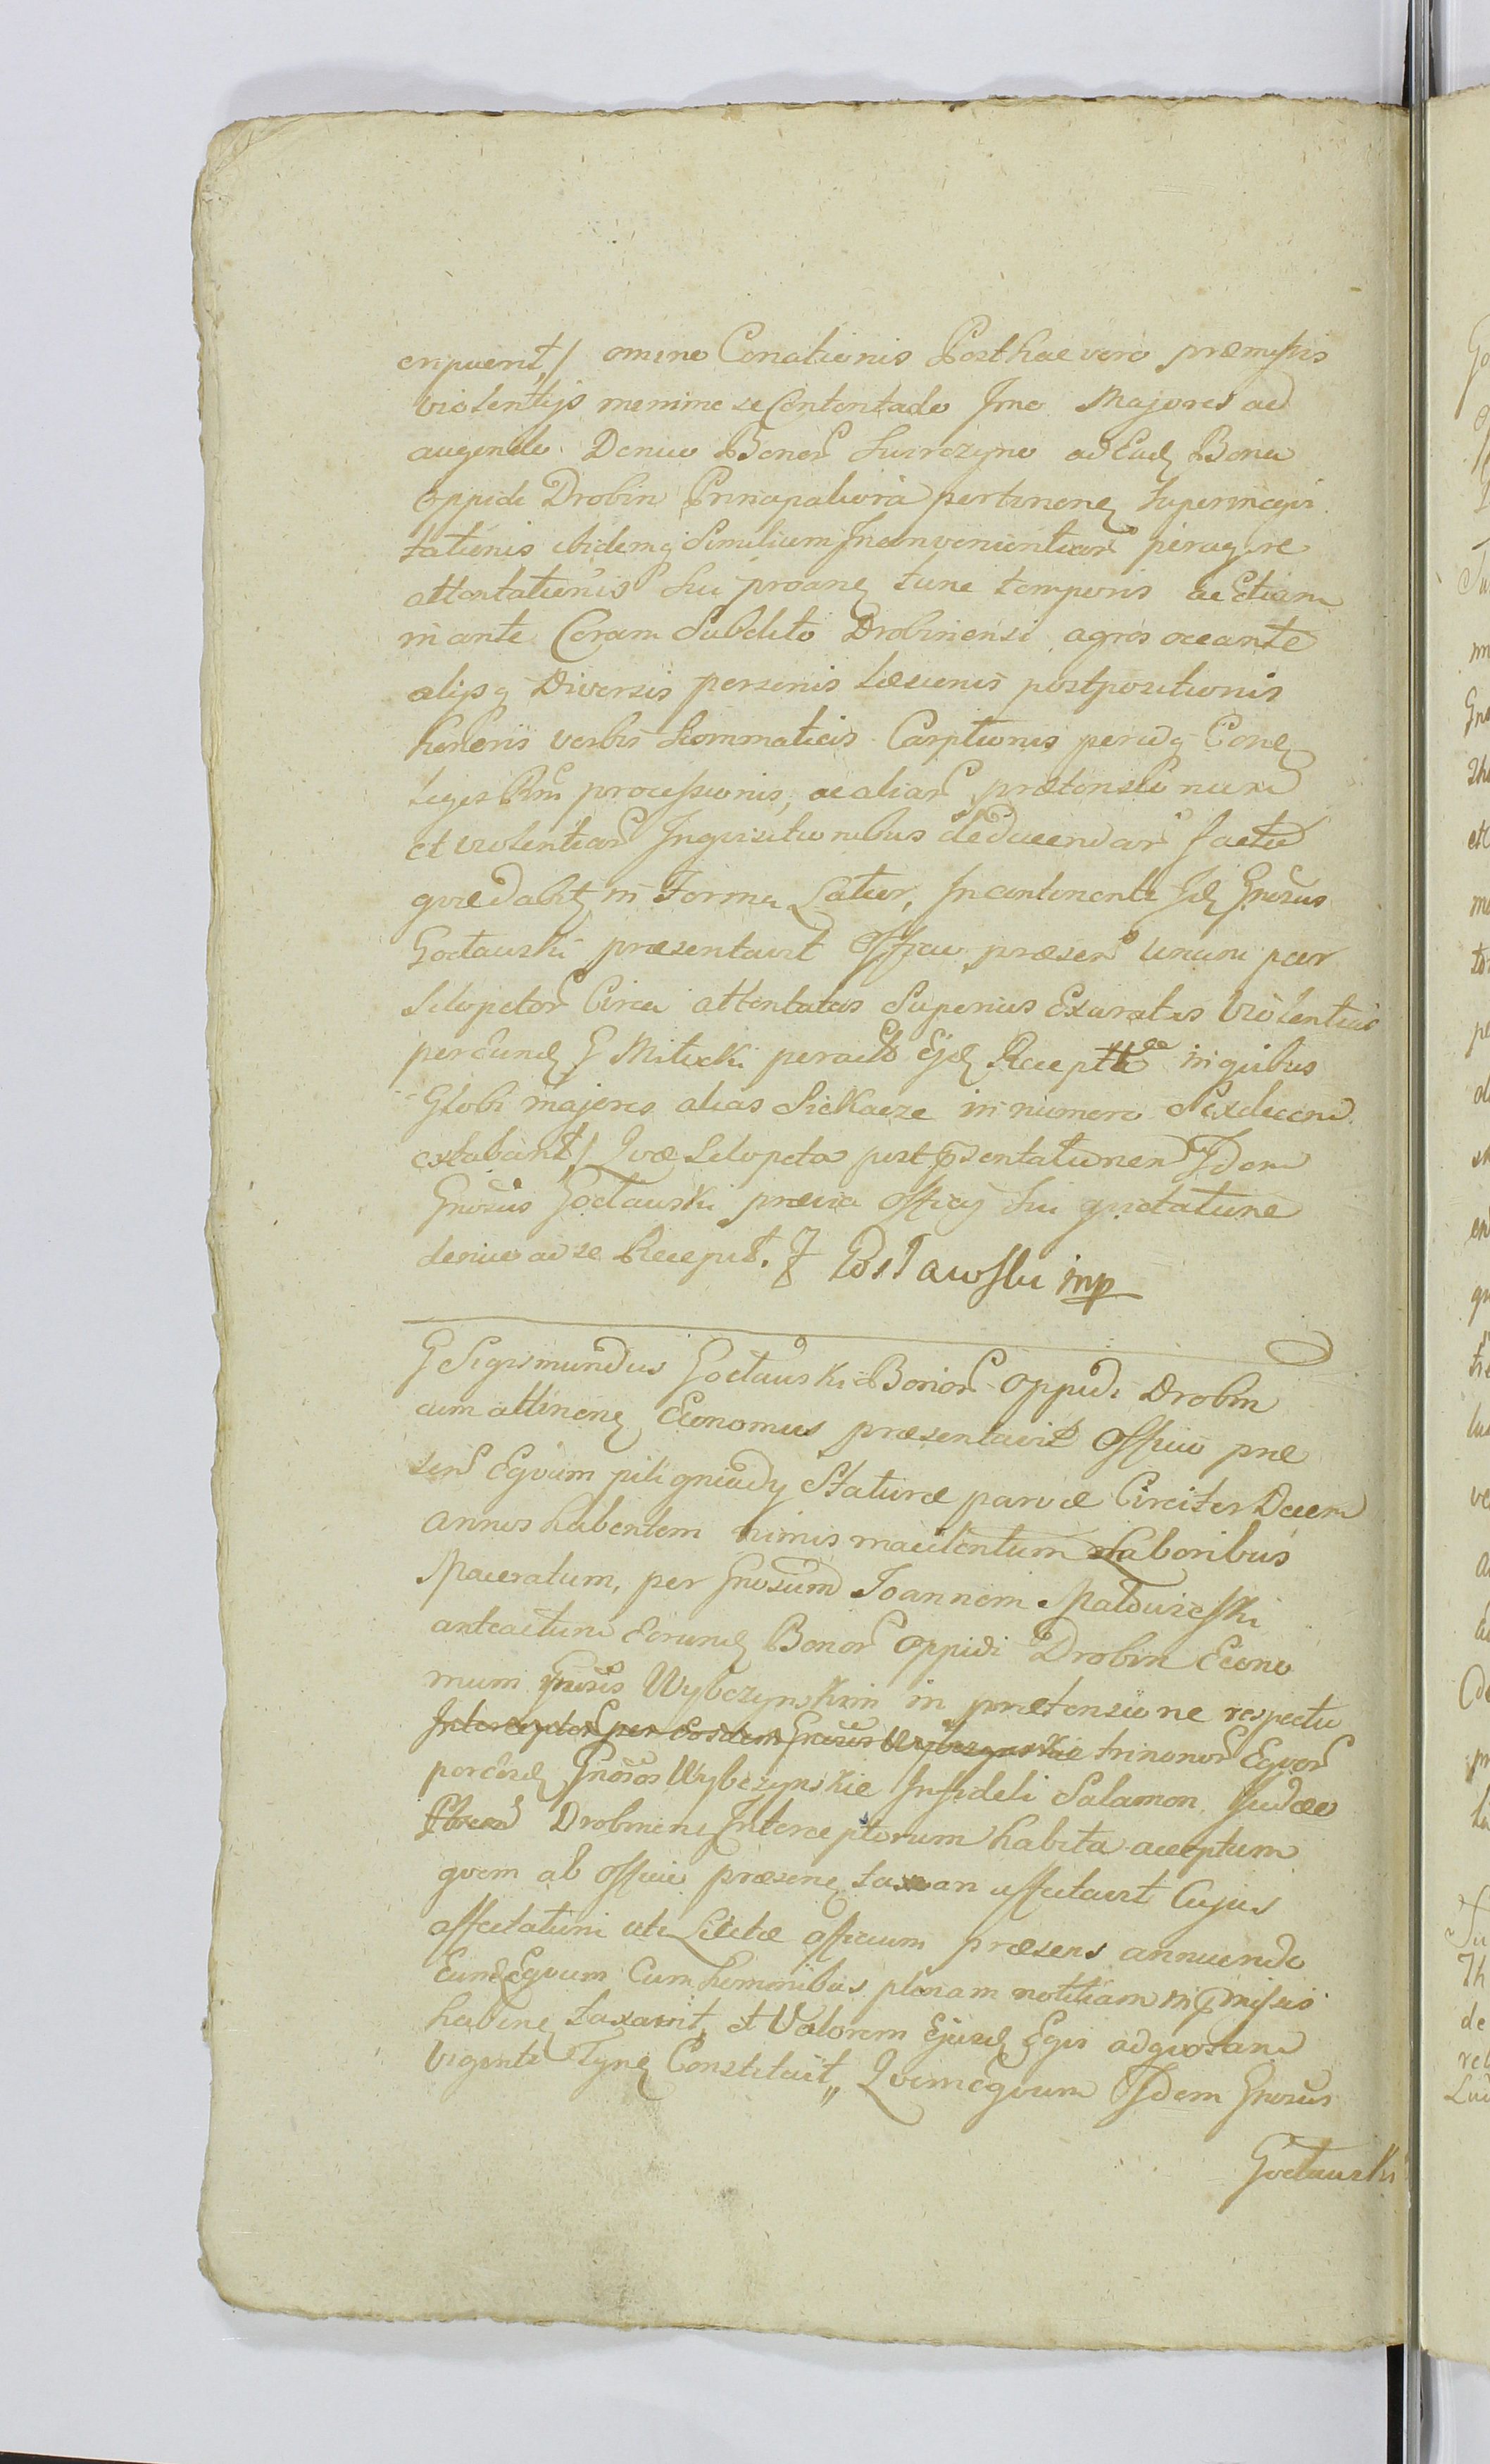 eripuerit,/ omine Conationis Posthac vero præmissis
violentijs menime se Contentado Imo Majores ad
augendo Denuo Bonor Swirczyno ad Ead Bona
Oppidi Drobin Principaliora pertinen Superincepi
tationis ibidemq Similium Inconvenientiar peragere
attentationis Sui proane tunc temporis ac Etiam
in ante Coram Subdito Drobinensi agros occante
alijsq Diversis personis Læsionis postpositionis
honoris verbis Scommaticis Carptionis peridq Cond
Leges Rni processionis, ac aliar prætensionum
et violentiar Inqvisitionibus deducendar factæ
qvæ dabit in Forma Latior, Incontinenti Id Gnosus
Goctawski præsentavit Officio præsen unum par
Silopetor Circa attentatas Superius Exaratas Violentias
per eund G Milicki peracto Ejd Recept in qvibus
Globi majores alias Siekacze in numero Sexdecem
extabant,/ Qvæ Silopeta post pñsentationem Idem
Gnosus Goctawski prævia Officij Sui qvietatione
denuo ad se Recepit.
G Sigismundus Goctawski Bonor Oppidi Drobin
cum attinen Economus præsentavit Officio præ
sen Eqvum pili gniady Staturæ parvæ Circiter Decem
annos habentem nimis macilentum Laboribus
Maceratum, per Gnosum Joannem
anteactum Eorund Bonor Oppidi Drobin Econo
mum Gnosis Wybczynskim in prætensione respectu
Interceptor per Eosdem Gnosos Wybczynskie trinonor Eqvor
per Eosd Gnosos Wybczynskie Infideli Salamon Judæo
Drobinen Interceptorum habita acceptum
qvem ab Officio præsene taxan affectavit Cujus
affectationi uti Licitæ officium præsens annuendo
Eund Eqvum Cum hominibus plenam notitiam in præmissis
haben taxavit, et Valorem Ejusd Eqvi ad qvotam
viginti Tyn Constituit,, Qvem eqvum Idem Gnosus
Goctawski